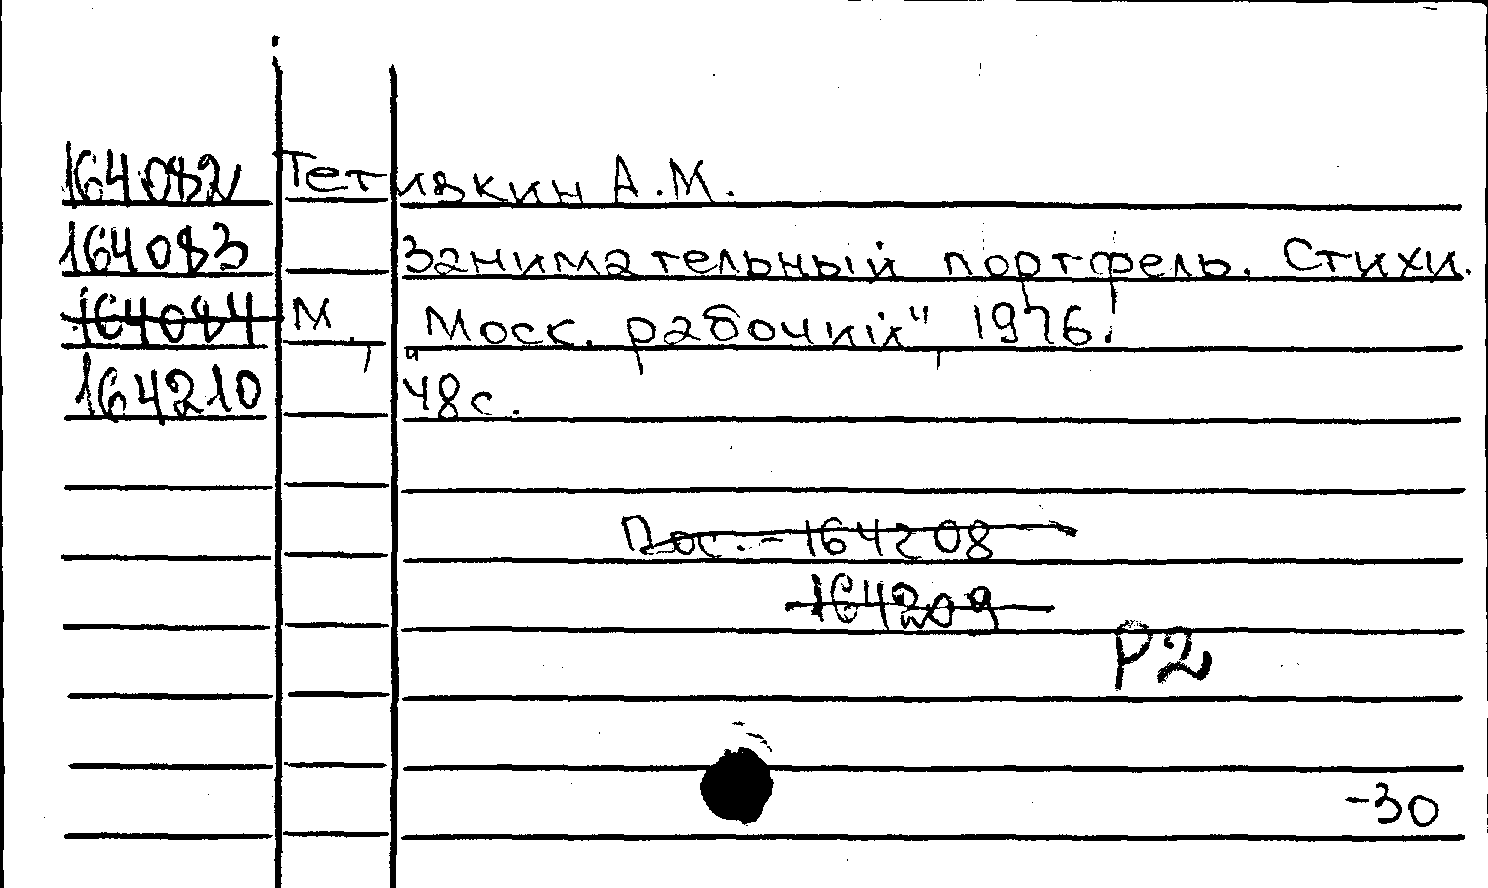 164082 Тетивкин А.М.
164083 Занимательный портфель. Стихи.
164084 М., "Моск. рабочий", 1976.
164210 48с.
Пос. - 164208
164209
Р2
-30